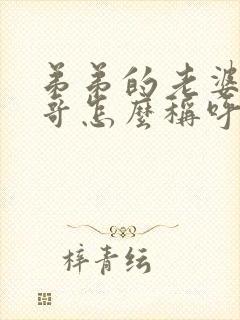 弟弟的老婆
哥怎麼稱呼
梓青纭